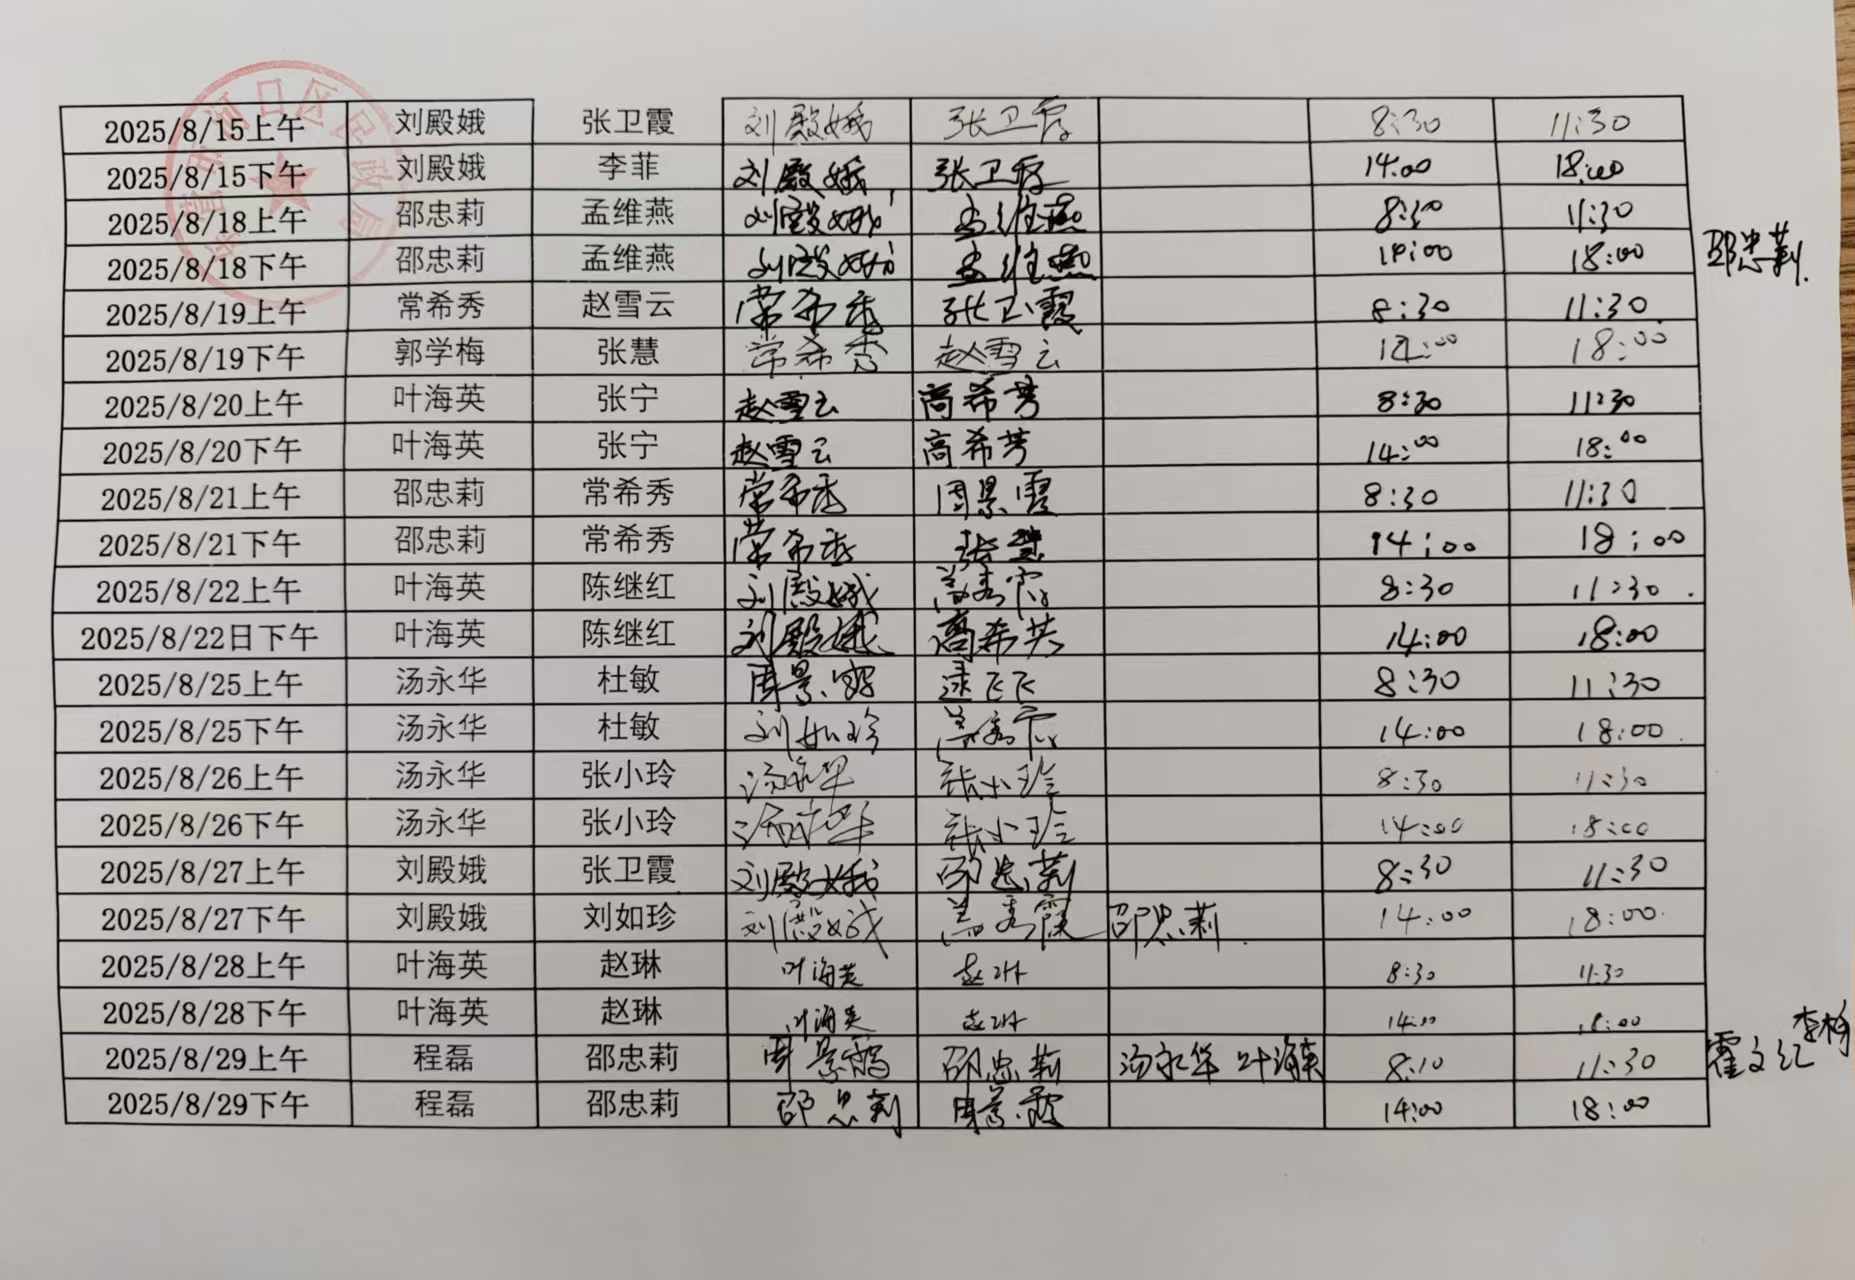 河口区民政局
2025/8/15上午 刘殿娥 张卫霞 刘殿娥 张卫霞 8:30 11:30
2025/8/15下午 刘殿娥 李菲 刘殿娥 张卫霞 14:00 18:00
2025/8/18上午 邵忠莉 孟维燕 刘殿娥 孟维燕 8:30 11:30
2025/8/18下午 邵忠莉 孟维燕 刘殿娥 孟维燕 14:00 18:00 邵忠莉
2025/8/19上午 常希秀 赵雪云 常希秀 张卫霞 8:30 11:30
2025/8/19下午 郭学梅 张慧 常希秀 赵雪云 14:00 18:00
2025/8/20上午 叶海英 张宁 赵雪云 高希芳 8:30 11:30
2025/8/20下午 叶海英 张宁 赵雪云 高希芳 14:00 18:00
2025/8/21上午 邵忠莉 常希秀 常希秀 周景霞 8:30 11:30
2025/8/21下午 邵忠莉 常希秀 常希秀 张慧 14:00 18:00
2025/8/22上午 叶海英 陈继红 刘殿娥 8:30 11:30
2025/8/22日下午 叶海英 陈继红 刘殿娥 高希芳 14:00 18:00
2025/8/25上午 汤永华 杜敏 周景霞 逯飞飞 8:30 11:30
2025/8/25下午 汤永华 杜敏 刘如珍 14:00 18:00
2025/8/26上午 汤永华 张小玲 汤永华 张小玲 8:30 11:30
2025/8/26下午 汤永华 张小玲 汤永华 张小玲 14:00 18:00
2025/8/27上午 刘殿娥 张卫霞 刘殿娥 邵忠莉 8:30 11:30
2025/8/27下午 刘殿娥 刘如珍 刘殿娥 盖秀霞 邵忠莉 14:00 18:00
2025/8/28上午 叶海英 赵琳 叶海英 赵琳 8:30 11:30
2025/8/28下午 叶海英 赵琳 叶海英 赵琳 14:00 18:00
2025/8/29上午 程磊 邵忠莉 周景霞 邵忠莉 汤永华 叶海英 8:10 11:30 霍文红 李梅
2025/8/29下午 程磊 邵忠莉 邵忠莉 周景霞 14:00 18:00